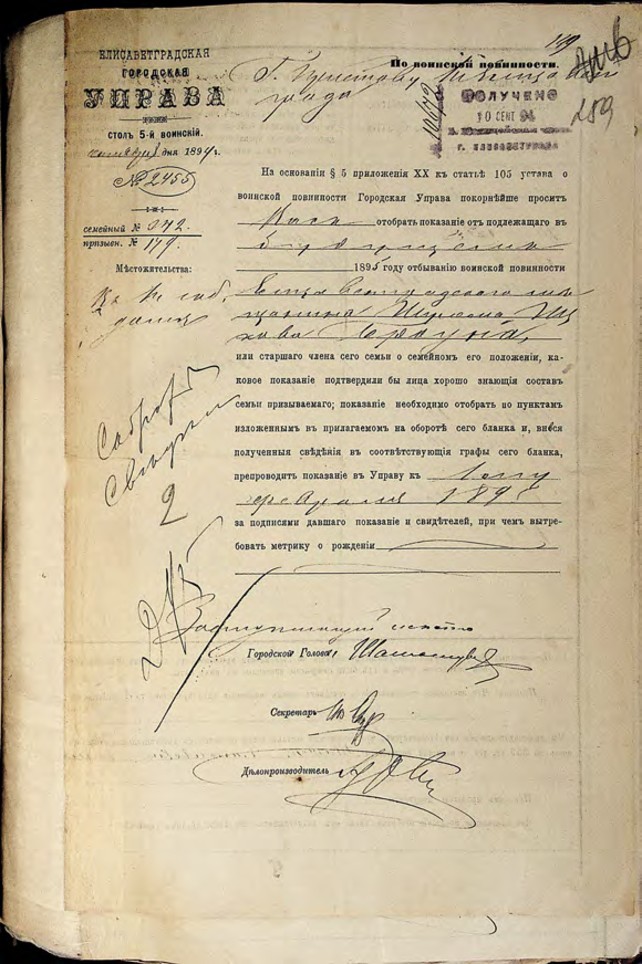 ЕЛИСАВЕТГРАДСКАЯ
ГОРОДСКАЯ
УПРАВА
СТОЛЪ 5-й ВОИНСКІЙ.
дня 1894 г.
№ 2455
семейный № 942.
призывн. № 149.
Мѣстожительства:
149
По воинской повинности.
Г. Приставу
града
ПОЛУЧЕНО
10 СЕНТ 94
259
На основаніи § 5 приложенія XX къ статьѣ 105 устава о
воинской повинности Городская Управа покорнѣйше проситъ
Васъ отобрать показаніе отъ подлежащаго въ
1895 году отбыванію воинской повинности
Елисаветградскаго мѣ-
щанина Шулема Иц
кова Брауна,
или старшаго члена сего семьи о семейномъ его положеніи, ка-
ковое показаніе подтвердили бы лица хорошо знающія составъ
семьи призываемаго; показаніе необходимо отобрать по пунктамъ
изложеннымъ въ прилагаемомъ на оборотѣ сего бланка и, внеся
полученныя свѣдѣнія въ соотвѣтствующія графы сего бланка,
препроводить показаніе въ Управу къ 1 ому
февраля 1895
за подписями давшаго показаніе и свидѣтелей, при чемъ вытре-
бовать метрику о рожденіи
2
Заступающій мѣсто
Городской Головы
Секретарь
Дѣлопроизводитель